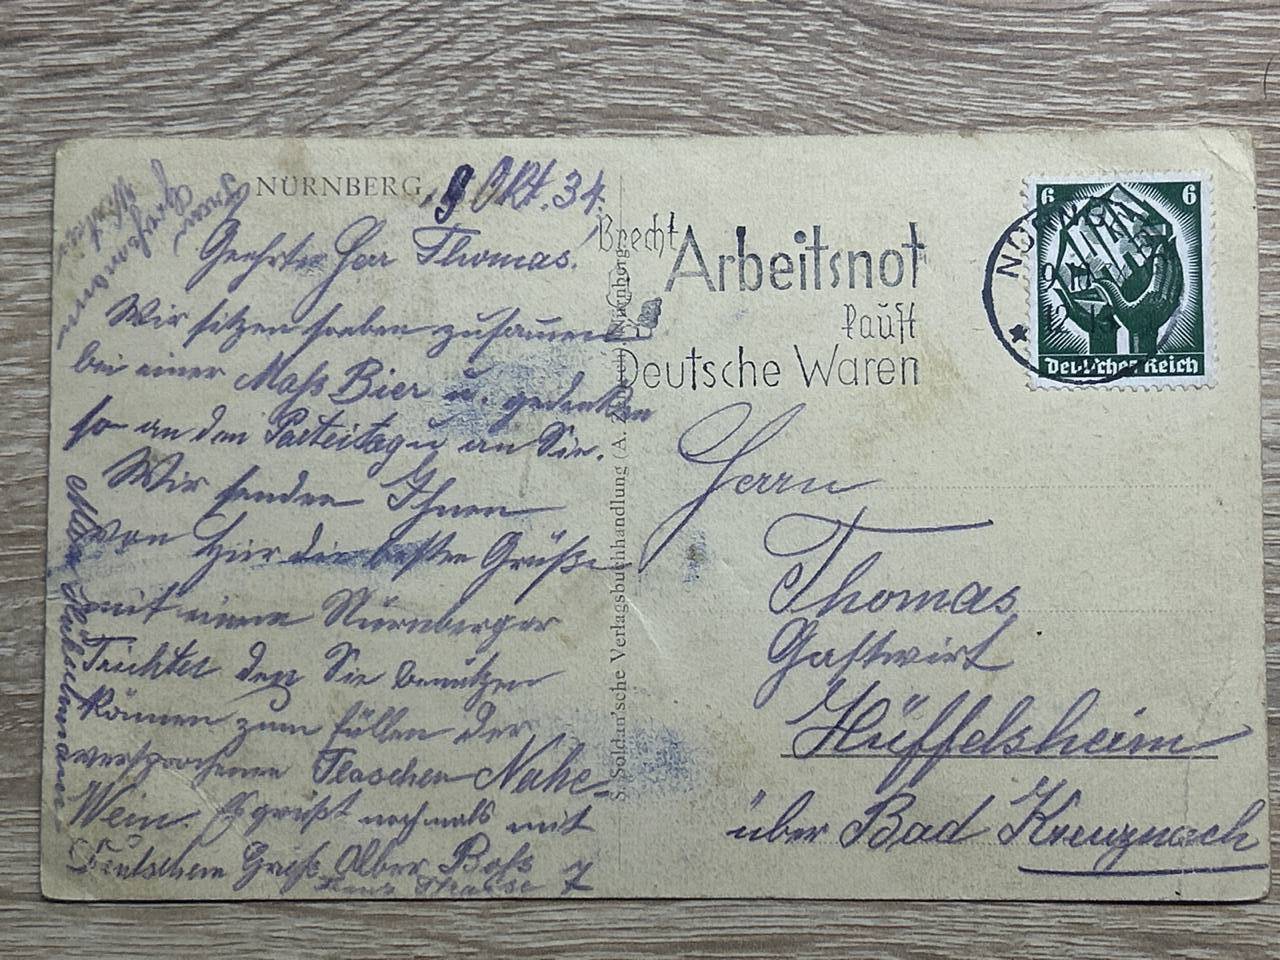 NÜRNBERG, 9 Okt. 34.
Geehrter Herr Thomas!
Wir sitzen soeben zusammen
bei einer Mass Bier u. gedenken
so an den Parteitag u an Sie.
Wir senden Ihnen
von hier die besten Grüße
mit einem Nürnberger
Trichter den Sie benützen
können zum füllen der
versprochenen Flaschen Nahe-
Wein. Es grüßt nochmals mit
Deutschem Gruß
Strasse 7
Frau
S. Soldan'sche Verlagsbuchhandlung (A. Nürnberg
Brecht
Arbeitsnot
kauft
Deutsche Waren
6 6
Deutsches Reich
Herrn
Thomas
Gastwirt
Hüffelsheim
über Bad Kreuznach